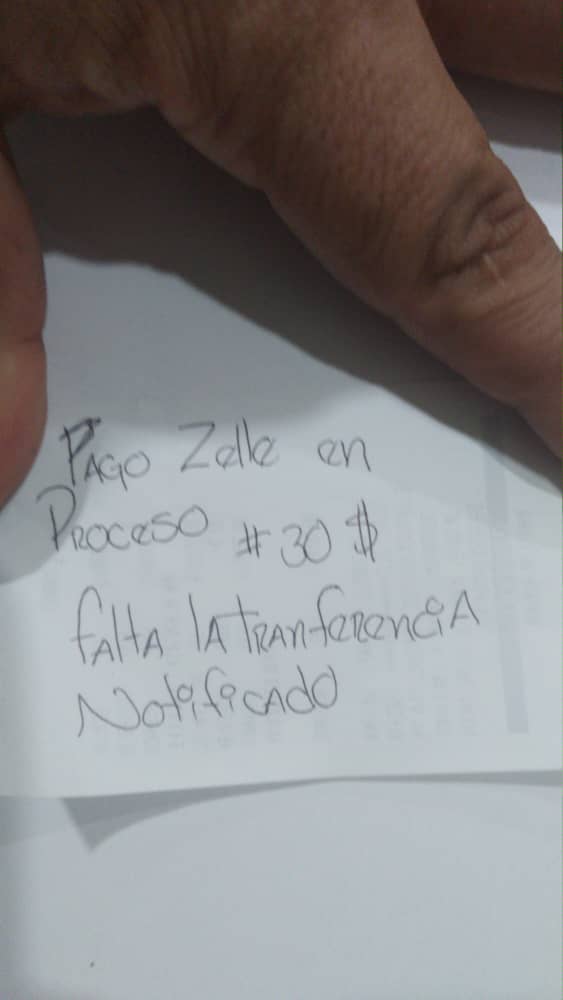 Pago Zelle en
Proceso # 30 $
falta la Tranferencia
Notificado